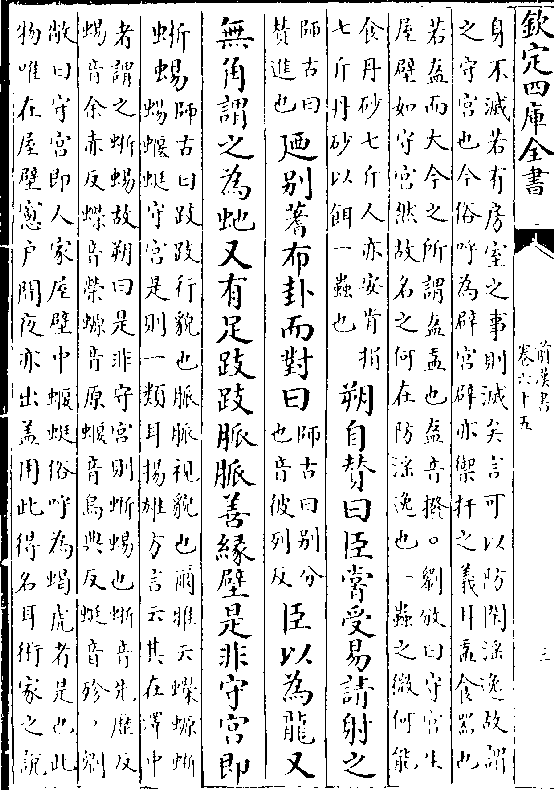 欽定四庫全書
前漢書
卷六十五
三
身不滅若有房室之事則滅矣言可以防閑淫逸故謂
之守宫也今俗呼為辟宫辟亦禦扞之義耳盂食器也
若盋而大今之所謂盋盂也盋音撥○劉攽曰守宫生
屋壁如守宫然故名之何在防淫逸也一蟲之微何能
食丹砂七斤人亦安肯捐
七斤丹砂以餌一蟲也
朔自贊曰臣嘗受易請射之
師古曰
贊進也
廼别蓍布卦而對曰
師古曰别分
也音彼列反
臣以為龍又
無角謂之為虵又有足跂跂脈脈善緣壁是非守宫即
蜥蜴
師古曰跂跂行貌也脈脈視貌也爾雅云蠑螈蜥
蜴蜴蝘蜓守宫是則一類耳揚雄方言云其在澤中
者謂之蜥蜴故朔曰是非守宫則蜥蜴也蜥音先歴反
蜴音余赤反蠑音榮螈音原蝘音烏典反蜓音殄○劉
敞曰守宫即人家屋壁中蝘蜓俗呼為蝎虎者是也此
物唯在屋壁窻户間夜亦出盖用此得名耳術家之説